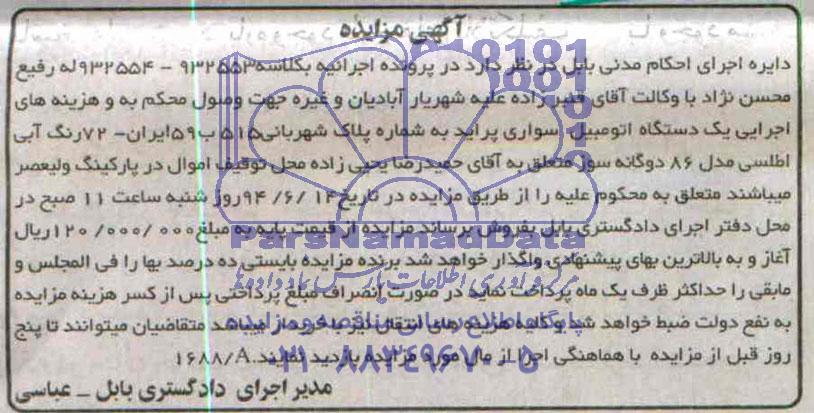 آگهی مزایده
دایره اجرای احکام مدنی بابل در نظر دارد در پرونده اجرائیه بکلاسه ۹۳۲۵۵۳ - ۹۳۲۵۵۴ له رفیع
محسن نژاد با وکالت آقای قنبرزاده علیه شهریار آبادیان و غیره جهت وصول محکم به و هزینه های
اجرایی یک دستگاه اتومبیل سواری پراید به شماره پلاک شهربانی ۵۱۵ ب ۵۹ ایران- ۷۲ رنگ آبی
اطلسی مدل ۸۶ دوگانه سوز متعلق به آقای حمیدرضا یحیی زاده محل توقیف اموال در پارکینگ ولیعصر
میباشند متعلق به محکوم علیه را از طریق مزایده در تاریخ ۹۴/۶/۱۴ روز شنبه ساعت ۱۱ صبح در
محل دفتر اجرای دادگستری بابل بفروش برساند مزایده از قیمت پایه به مبلغ ۱۲۰/۰۰۰/۰۰۰ ریال
آغاز و به بالاترین بهای پیشنهادی واگذار خواهد شد برنده مزایده بایستی ده درصد بها را فی المجلس و
مابقی را حداکثر ظرف یک ماه پرداخت نماید در صورت انصراف مبلغ پرداختی پس از کسر هزینه مزایده
به نفع دولت ضبط خواهد شد و کلیه هزینه های انتقال نیز به خریدار میباشد متقاضیان میتوانند تا پنج
روز قبل از مزایده با هماهنگی اجرا از مال مورد مزایده بازدید نمایند. ۱۶۸۸/A
مدیر اجرای دادگستری بابل - عباسی
ParsNamadData
مرکز فرآوری اطلاعات پارس نماد داده ها
پایگاه اطلاع رسانی مناقصه و مزایده
۰۲۱-۸۸۳۴۹۶۷۰-۵